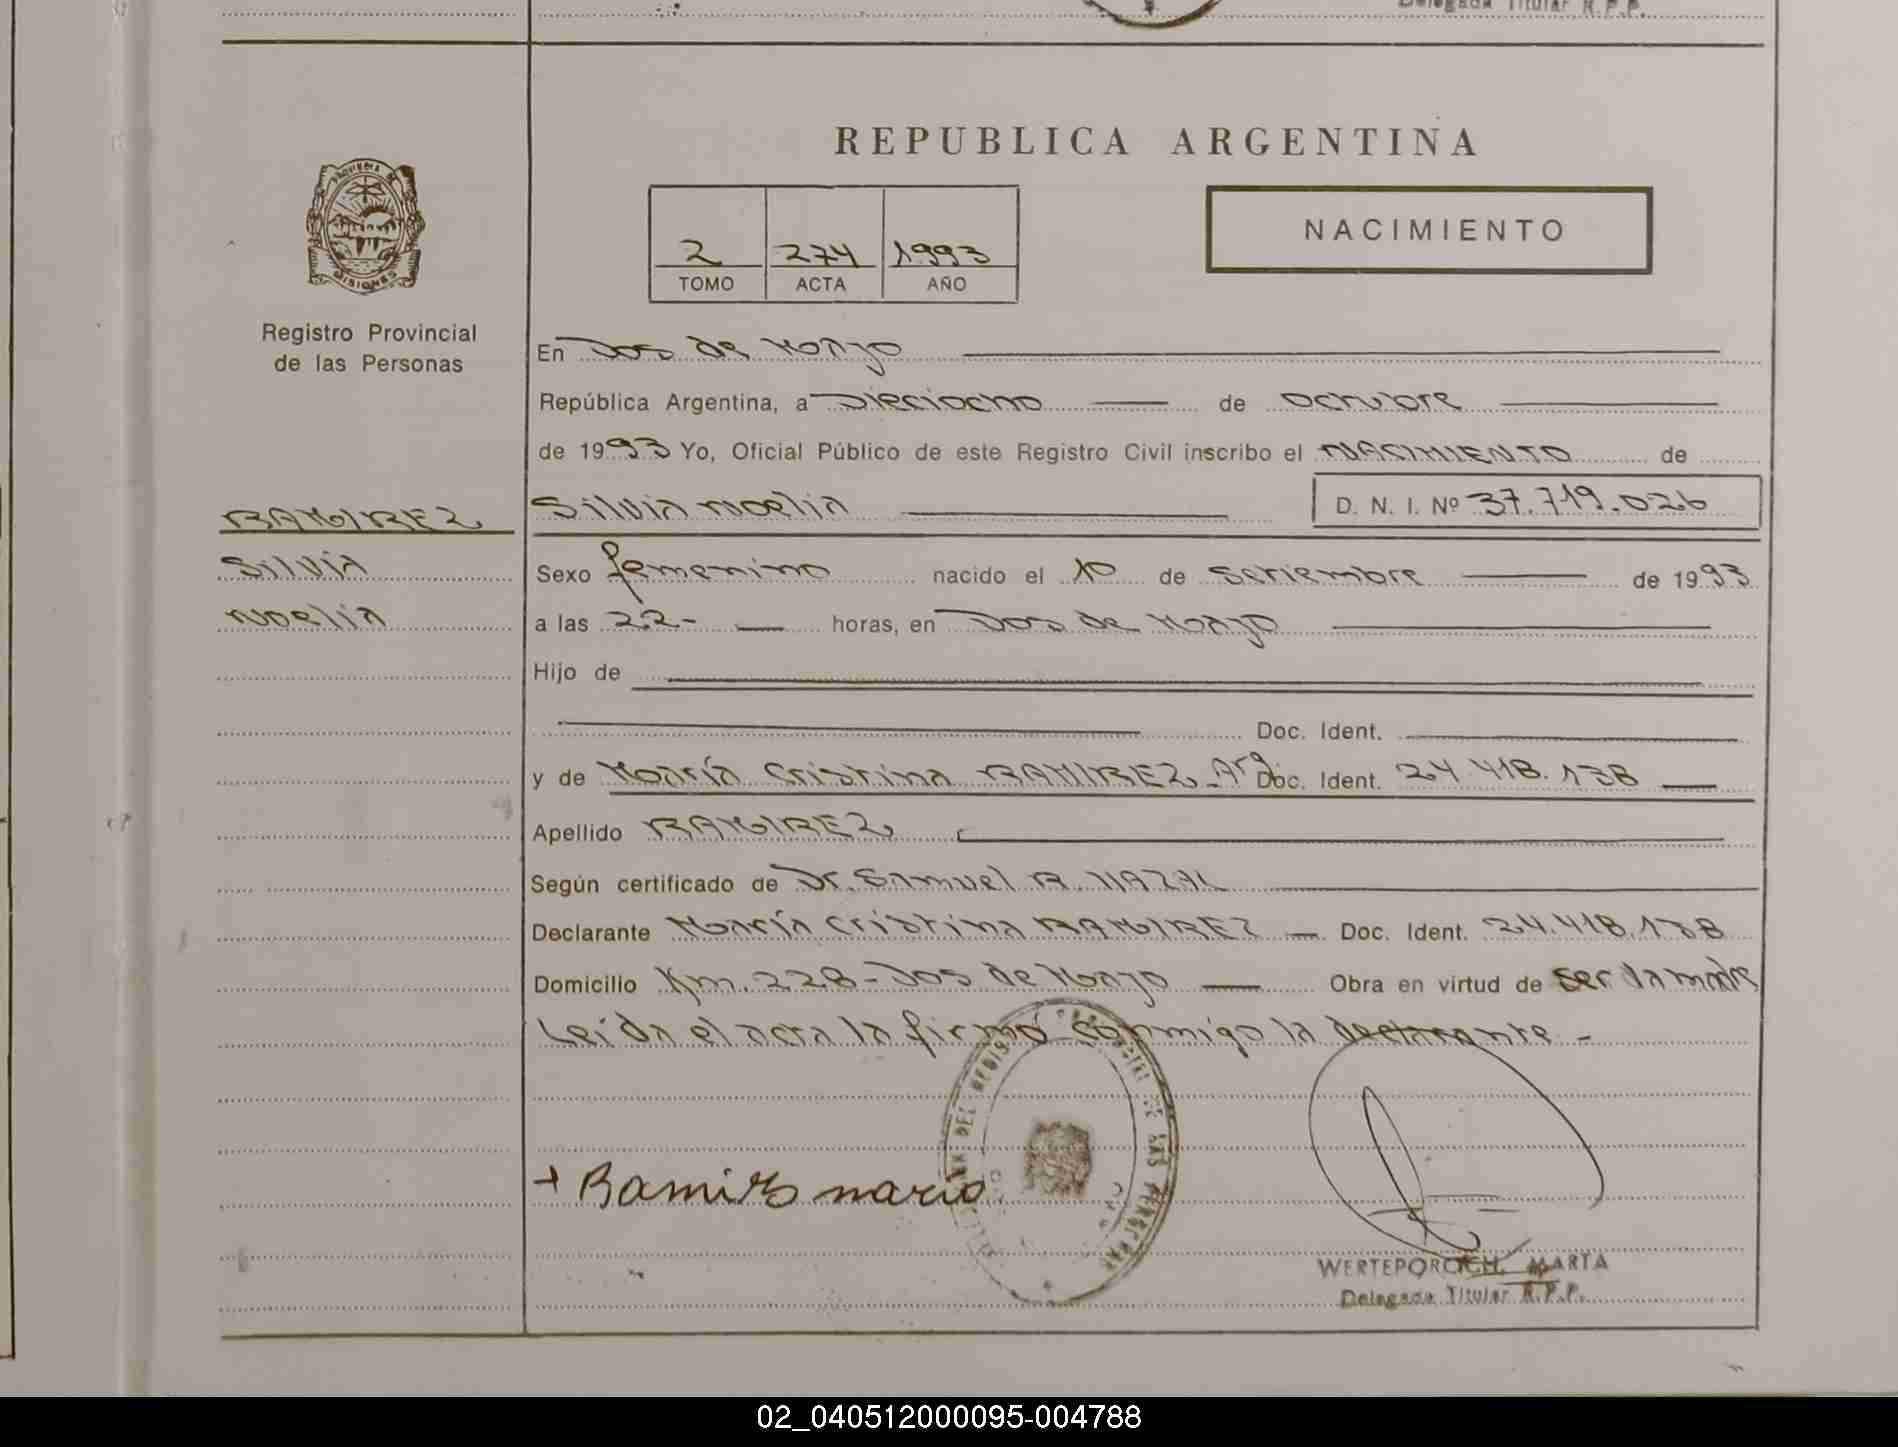 Delegada Titular R.P.P.
REPUBLICA ARGENTINA
PROVINCIA DE
MISIONES
2 274 1993
TOMO ACTA AÑO
NACIMIENTO
Registro Provincial
de las Personas
En Dos de Mayo
República Argentina, a Dieciocho de octubre
de 1993 Yo, Oficial Público de este Registro Civil inscribo el NACIMIENTO de
RAMIREZ
Silvia Noelia D. N. I. Nº 37.719.026
Silvia
Sexo femenino nacido el 10 de setiembre de 1993
Noelia
a las 22- horas, en Dos de Mayo
Hijo de
Doc. Ident.
y de María Cristina RAMIREZ - Arg. Doc. Ident. 24.418.138
Apellido RAMIREZ
Según certificado de Dr. Samuel A.
Declarante María Cristina RAMIREZ Doc. Ident. 24.418.138
Domicilio Km. 228 - Dos de Mayo Obra en virtud de ser la madre
Leída el acta la firmó conmigo la declarante -
DEL REGISTRO PROVINCIAL DE LAS PERSONAS
+ Ramirez maria
WERTEPOROCH, MARTA
Delegada Titular R.P.P.
02_040512000095-004788